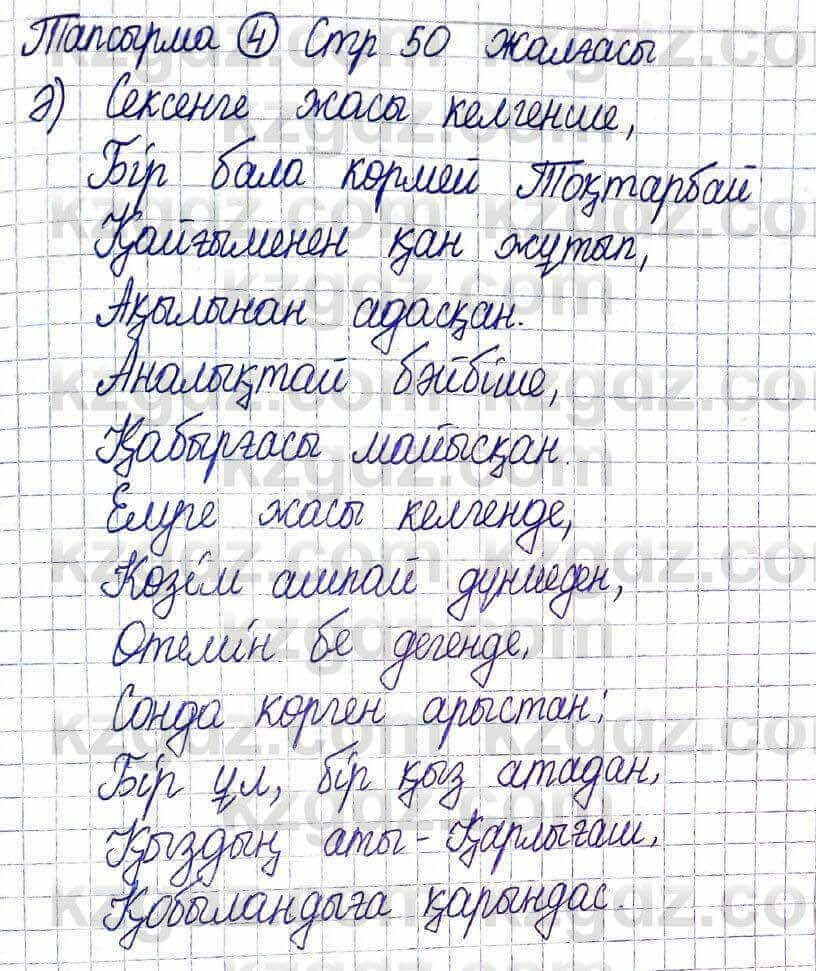 Тапсырма ④ Стр 50 жалғасы
ә) Сексенге жасы келгенше,
Бір бала көрмей Тоқтарбай
Қайғыменен қан жұтып,
Ақылынан адасқан.
Аналықтай бәйбіше,
Қабырғасы майысқан.
Елуге жасы келгенде,
Көзім ашпай дүниеден,
Өтемін бе дегенде,
Сонда көрген арыстан:
Бір ұл, бір қыз атадан,
Қыздың аты - Қарлығаш,
Қобыландыға қарындас.